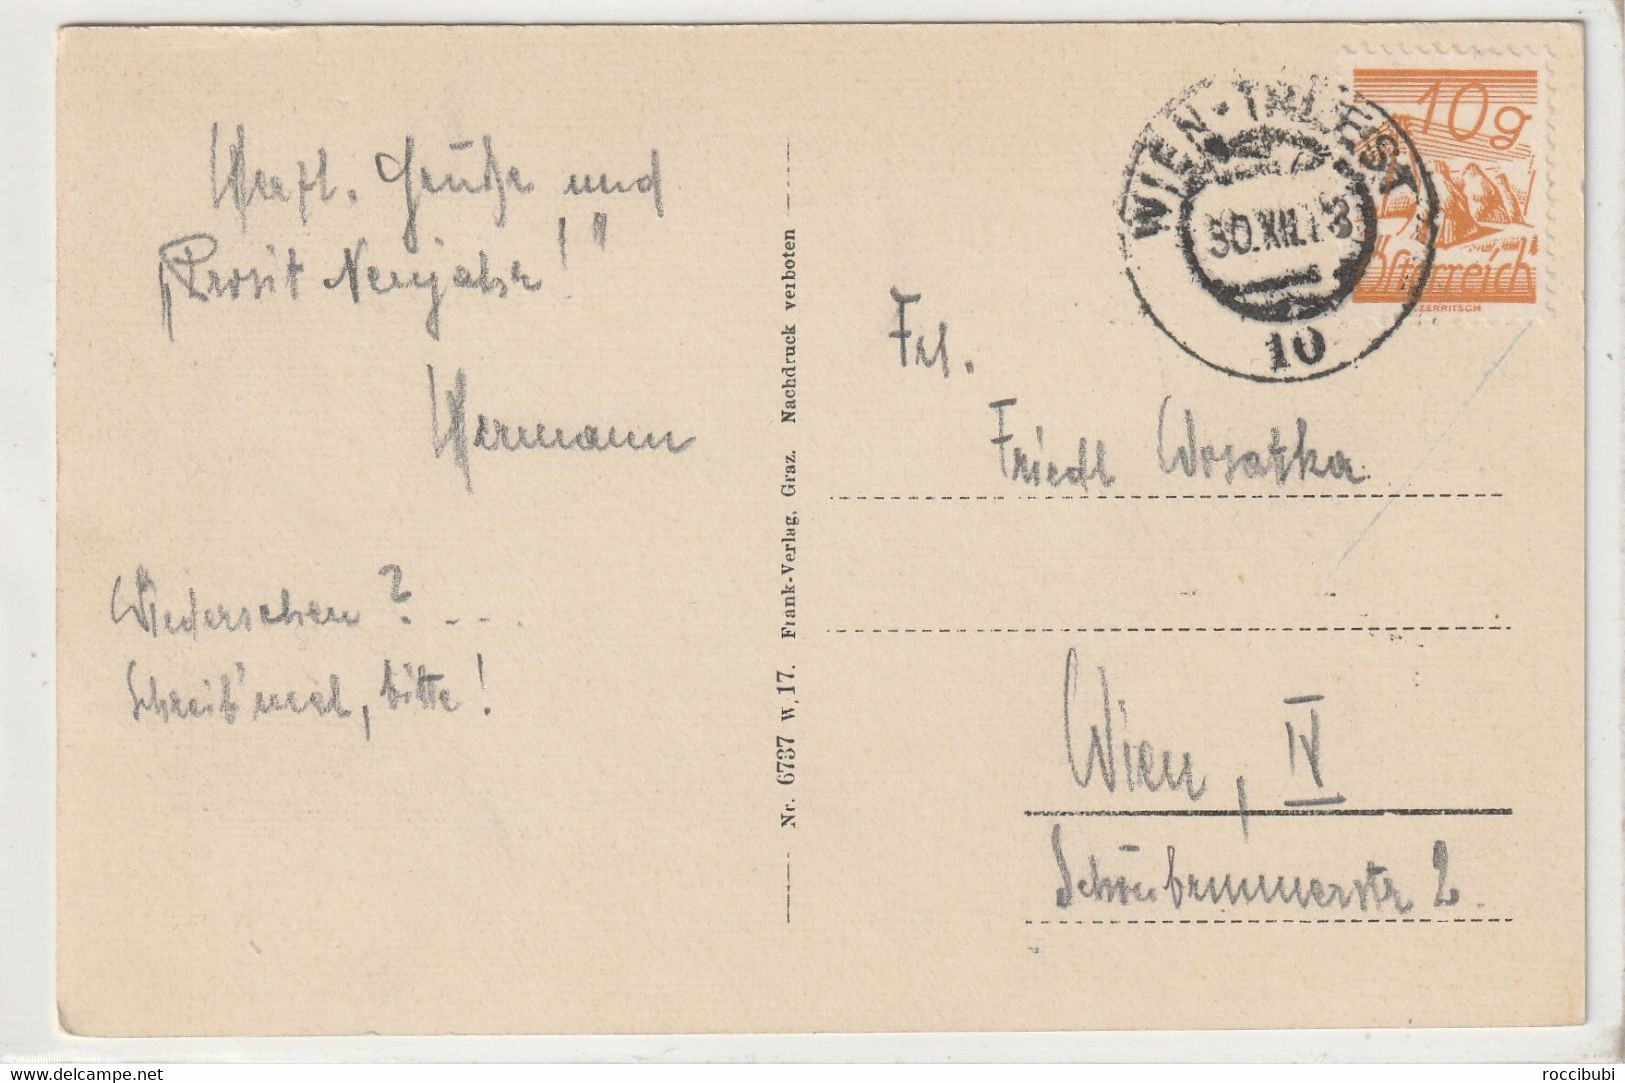 Herzl. Grüße und
„Prosit Neujahr!"
Hermann
Wiedersehen? ...
Schreib' mal, bitte!
Nr. 6737 W. 17. Frank-Verlag, Graz. Nachdruck verboten
WIEN - TRIEST
30.XII.
10
10g
Österreich
Frl.
Friedl Wosatka
Wien, IV
Schönbrunnerstr 2.
www.delcampe.net
roccibubi